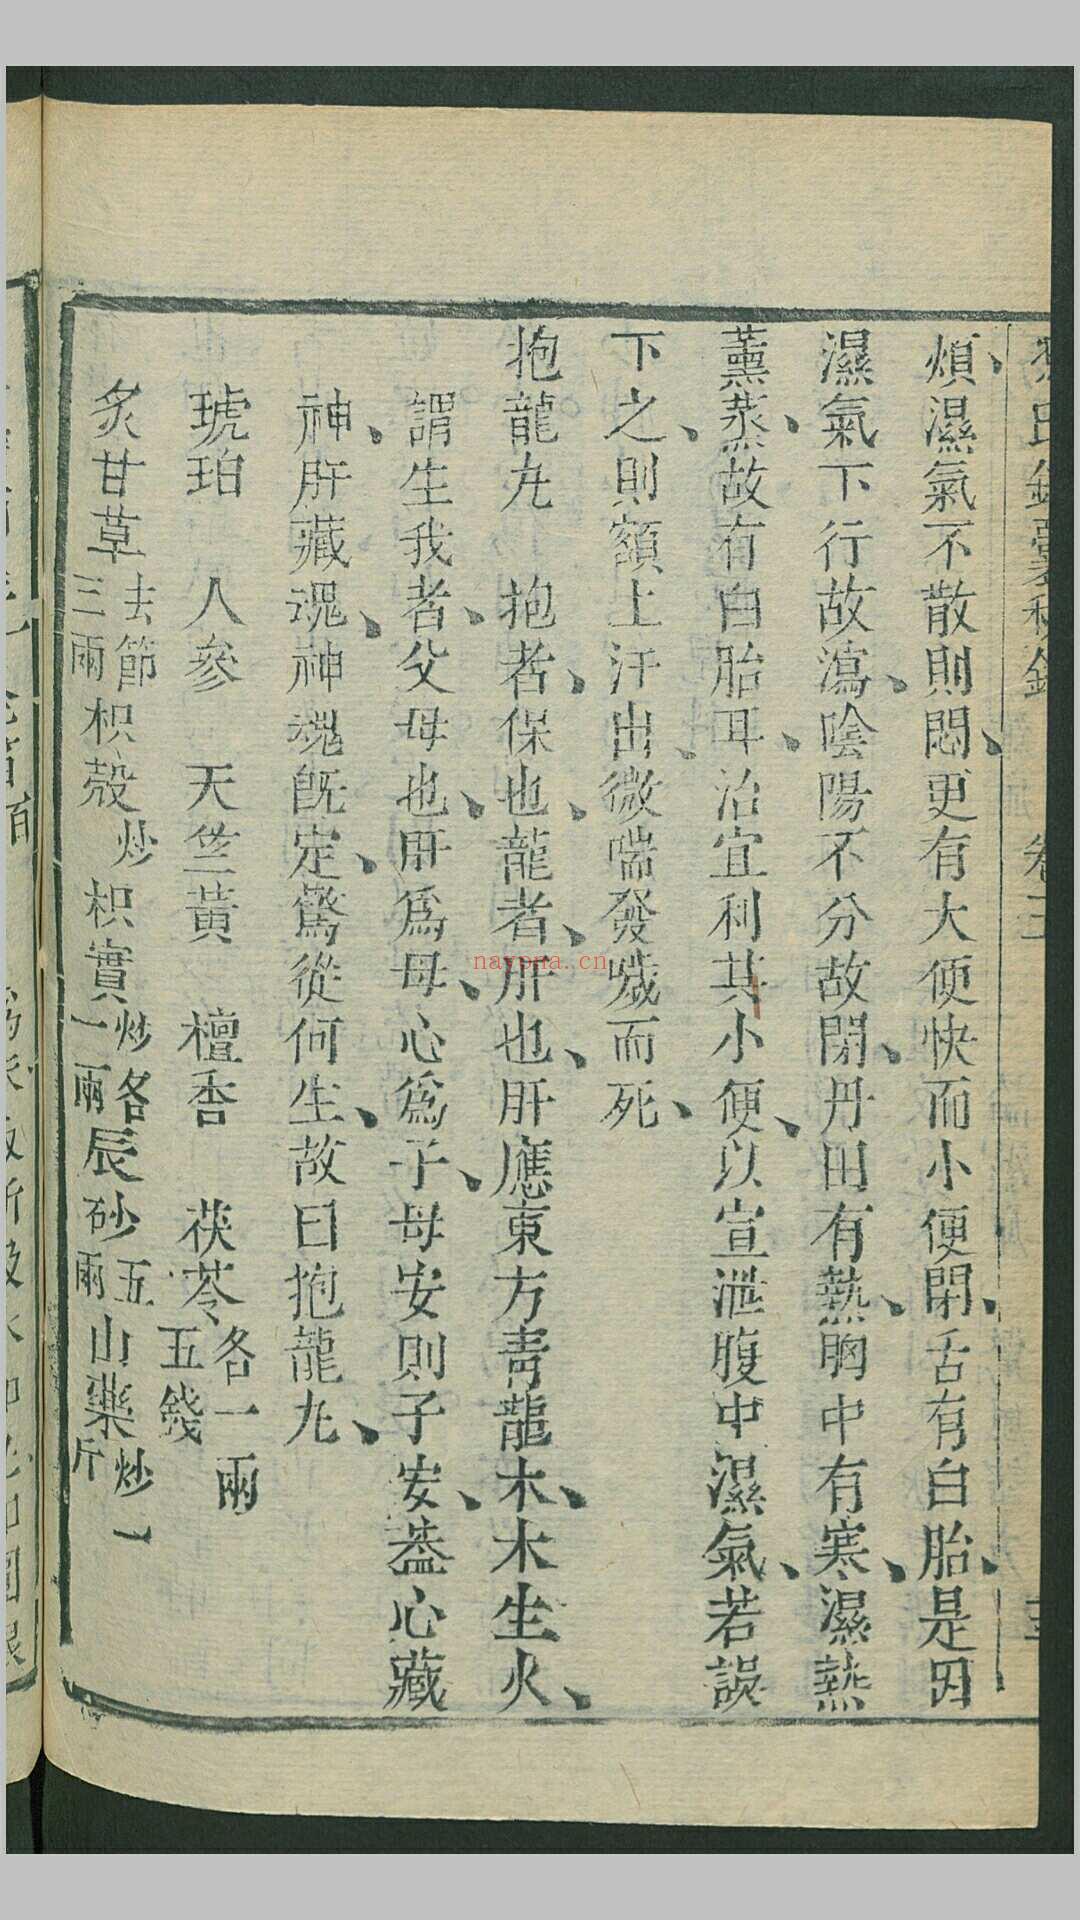 卷三
煩、濕氣不散則悶、更有大便快而小便閉、舌有白胎、是因
濕氣下行故瀉、陰陽不分故閉、丹田有熱、胸中有寒、濕熱
薰蒸、故有白胎耳、治宜利其小便、以宣泄腹中濕氣、若誤
下之、則額上汗出、微喘發噦而死、
抱龍丸　抱者、保也、龍者、肝也、肝應東方青龍木、木生火、
謂生我者、父母也、肝爲母、心爲子、母安則子安、葢心藏
神、肝藏魂、神魂既定、驚從何生、故曰抱龍丸、
琥珀　人參　天竺黃　檀香　茯苓各一兩五錢
炙甘草去節三兩枳殼炒枳實炒各一兩辰砂五兩山藥炒一斤
nayona.cn